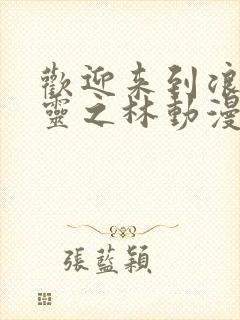 歡迎来到浪
靈之林動漫
張藍穎